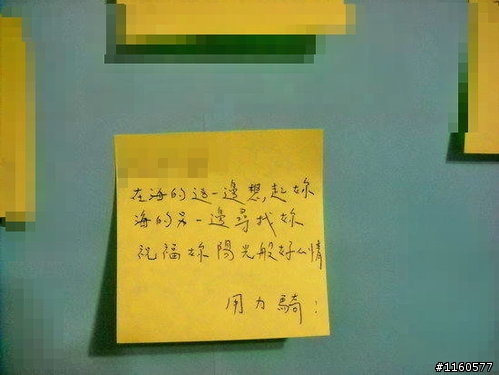 在海的這一邊想起妳
海的另一邊尋找妳
祝福妳陽光般好心情
用力騎!
#1160577